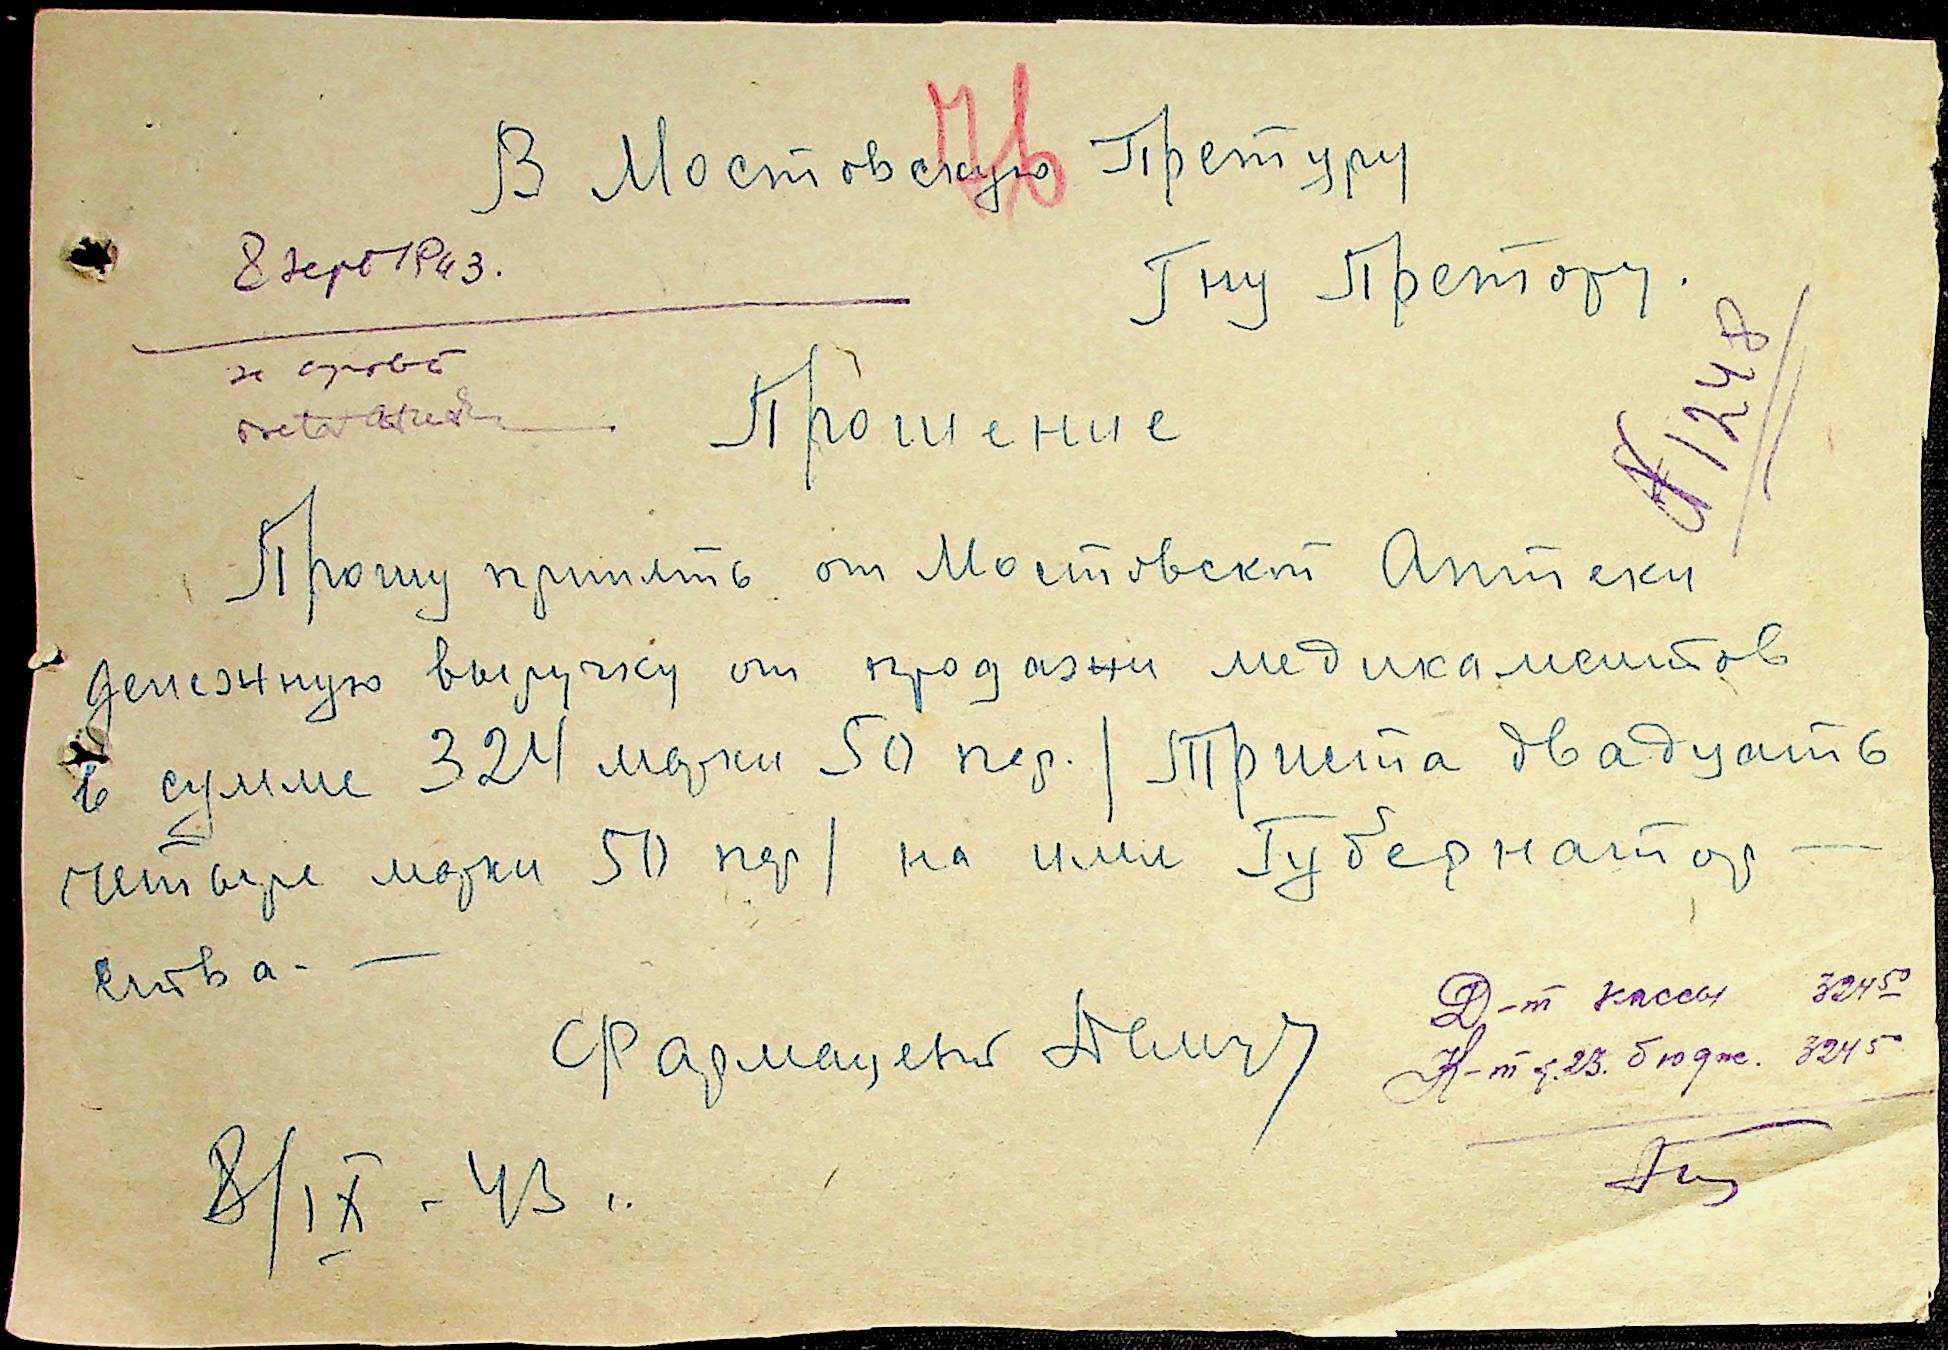 В Мостовскую Претуру
Гну Претору.
8 1943.
№ 1248
Прошение
Прошу принять от Мостовской Аптеки
денежную выручку от продажи медикаментов
в сумме 324 марки 50 пф. / Триста двадцать
четыре марки 50 пф / на имя Губернатор —
ства. —
Фармацевт
Д-т кассы 324 50
К-т 23. бюдж. 324 50
8/IX - 43 г.